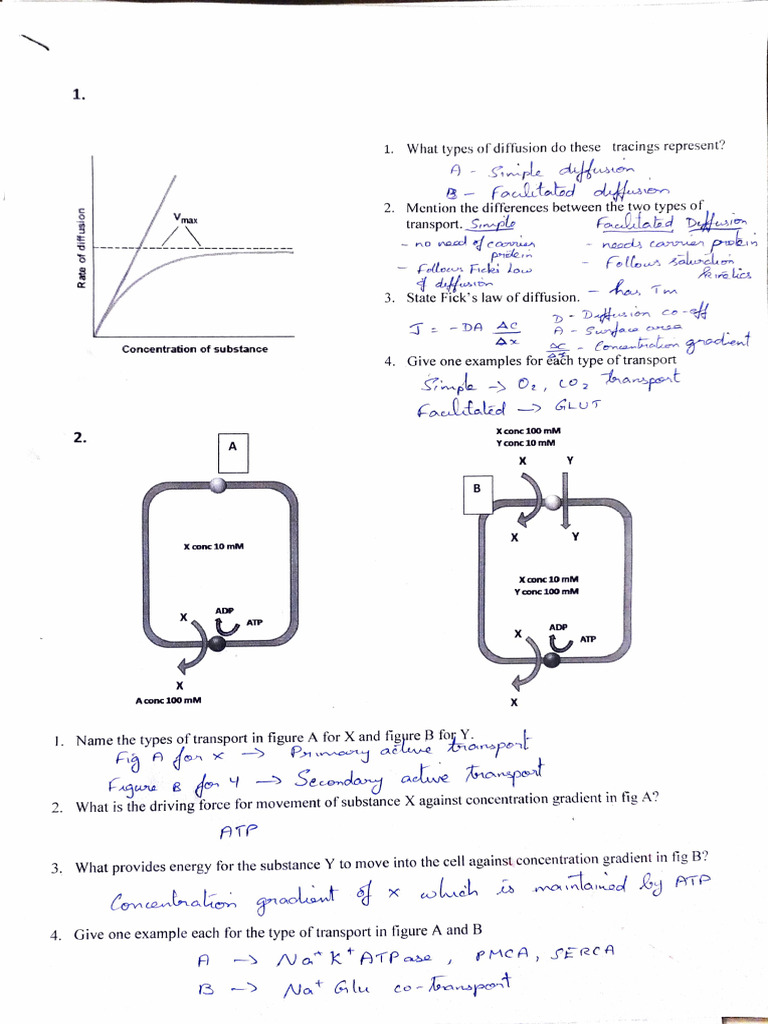 1.
1. What types of diffusion do these tracings represent?
A - Simple diffusion
B - Facilitated diffusion
2. Mention the differences between the two types of
transport. Simple Facilitated Diffusion
- no need of carrier protein - needs carrier protein
- Follows Ficks Law of diffusion - Follows saturation kinetics
- has Tm
Rate of diffusion
Vmax
Concentration of substance
3. State Fick's law of diffusion.
J = -DA ΔC/Δx
D - Diffusion co-eff
A - Surface area
ΔC/Δx - Concentration gradient
4. Give one examples for each type of transport
Simple → O2, CO2 transport
Facilitated → GLUT
2.
A
X conc 10 mM
X
ADP
ATP
X
A conc 100 mM
X conc 100 mM
Y conc 10 mM
X Y
B
X Y
X conc 10 mM
Y conc 100 mM
X
ADP
ATP
X
1. Name the types of transport in figure A for X and figure B for Y.
Fig A for X → Primary active transport
Figure B for Y → Secondary active transport
2. What is the driving force for movement of substance X against concentration gradient in fig A?
ATP
3. What provides energy for the substance Y to move into the cell against concentration gradient in fig B?
Concentration gradient of X which is maintained by ATP
4. Give one example each for the type of transport in figure A and B
A → Na+ K+ ATPase, PMCA, SERCA
B → Na+ Glu co-transport